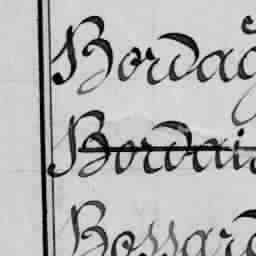 Bordag
Bordais
Bossard